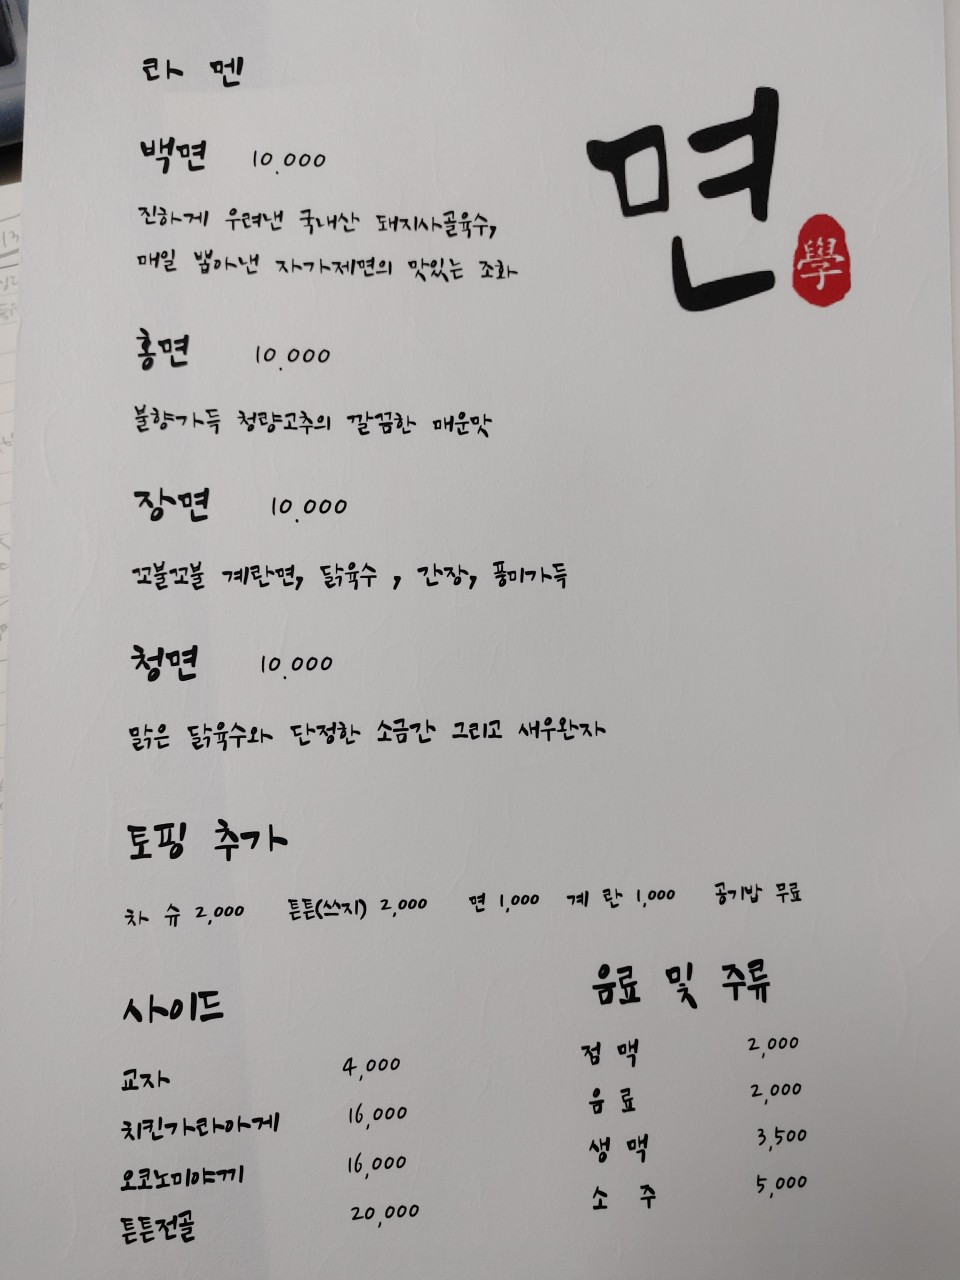 라 멘
면
學
백면 10.000
진하게 우려낸 국내산 돼지사골육수,
매일 뽑아낸 자가제면의 맛있는 조화
홍면 10.000
불향가득 청량고추의 깔끔한 매운맛
장면 10.000
꼬불꼬불 계란면, 닭육수 , 간장, 풍미가득
청면 10.000
맑은 닭육수와 단정한 소금간 그리고 새우완자
토핑 추가
차 슈 2,000 튼튼(쓰지) 2,000 면 1,000 계 란 1,000 공기밥 무료
사이드
교자 4,000
치킨가라아게 16,000
오코노미야끼 16,000
튼튼전골 20,000
음료 및 주류
점 맥 2,000
음 료 2,000
생 맥 3,500
소 주 5,000